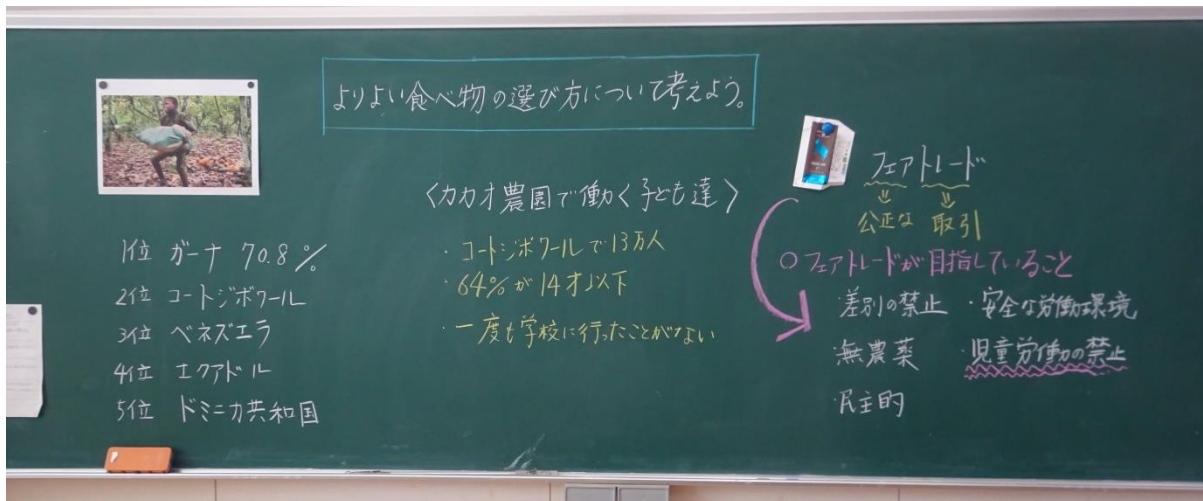 よりよい食べ物の選び方について考えよう。
1位 ガーナ 70.8%
2位 コートジボワール
3位 ベネズエラ
4位 エクアドル
5位 ドミニカ共和国
〈カカオ農園で働く子ども達〉
・コートジボワールで13万人
・64%が14才以下
・一度も学校に行ったことがない
フェアトレード
公正な 取引
○フェアトレードが目指していること
・差別の禁止 ・安全な労働環境
・無農薬 ・児童労働の禁止
・民主的